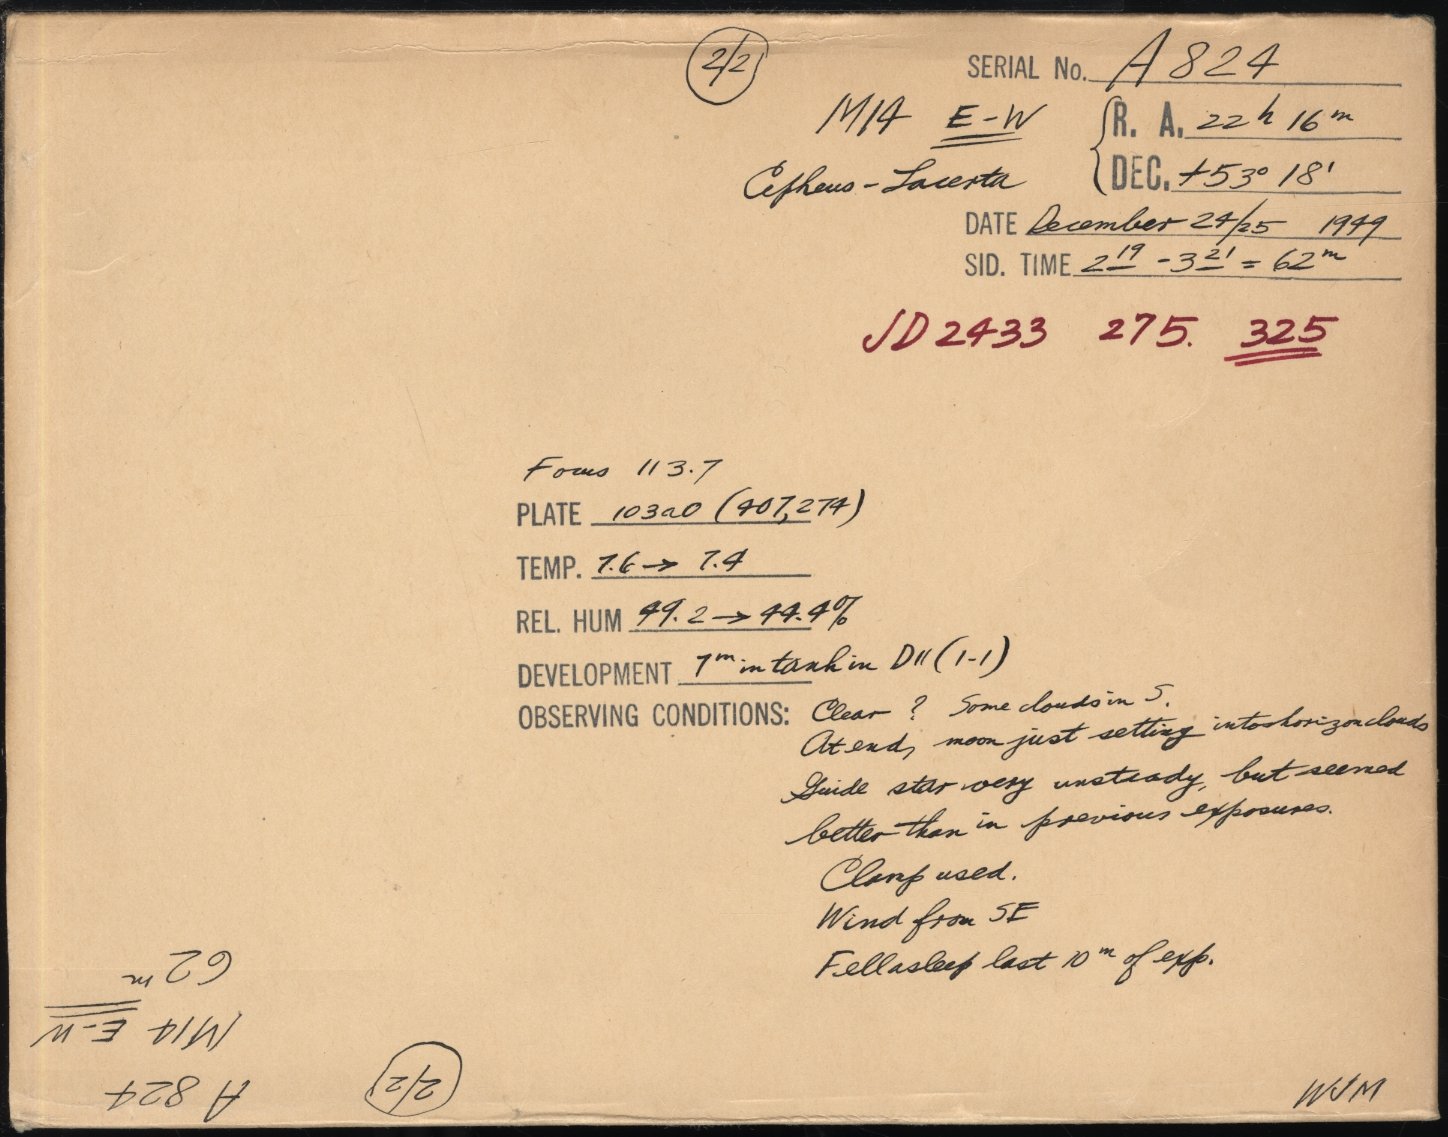 2/2
SERIAL No. A 824
M14 E-W
R. A. 22h 16m
Cepheus-Lacerta
DEC. +53° 18'
DATE December 24/25 1949
SID. TIME 2 19 - 3 21 = 62m
JD 2433 275. 325
Focus 113.7
PLATE 103aO (407,274)
TEMP. 7.6 → 7.4
REL. HUM 49.2 → 44.4%
DEVELOPMENT 7m in tank in D11 (1-1)
OBSERVING CONDITIONS: Clear ? Some clouds in S.
At end, moon just setting into horizon clouds
Guide star very unsteady, but seemed
better than in previous exposures.
Clamp used.
Wind from SE
Fell asleep last 10m of exp.
62m
M14 E-W
A 824
2/2
WJM